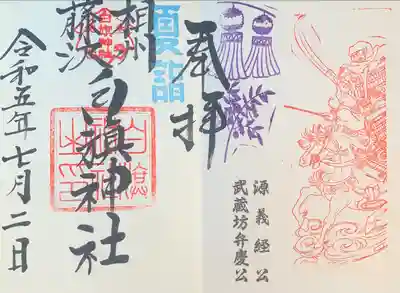 奉拝
夏詣
相州
藤沢
白旗神社
令和五年七月二日
源義経公
武蔵坊弁慶公